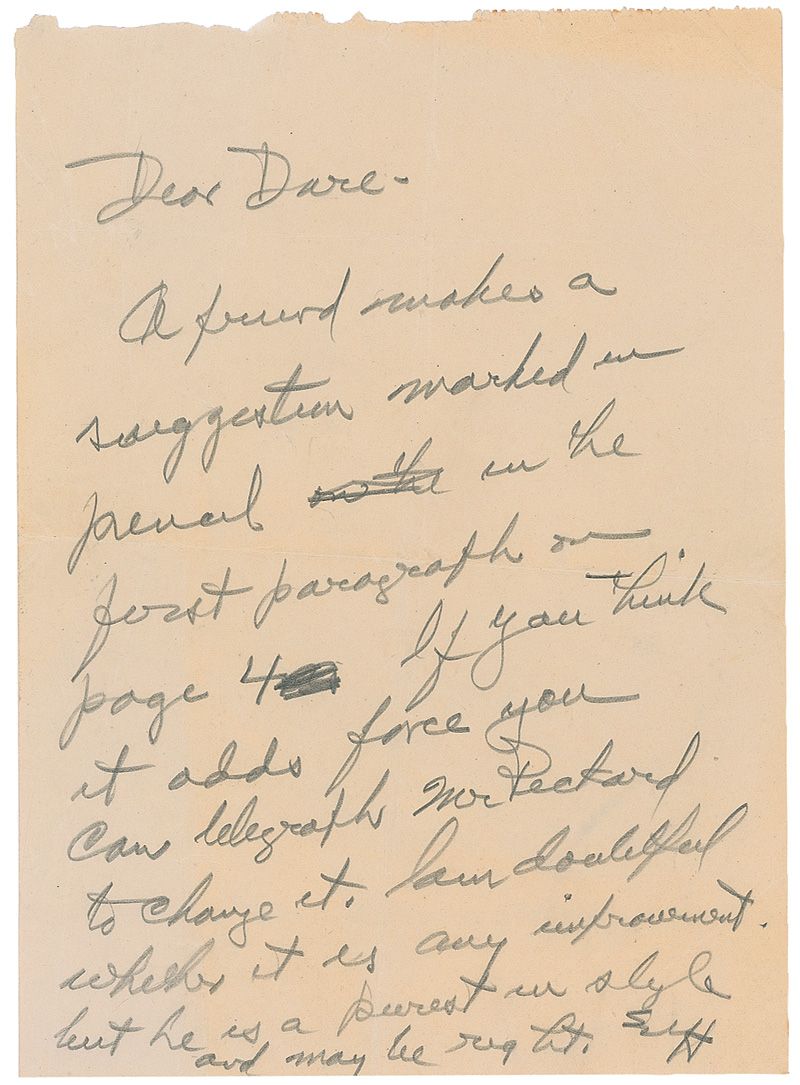 Dear Dare-
A friend makes a
suggestion marked in
pencil on the in the
first paragraph on
page 4 If you think
it adds force you
can telegraph Mr Peckard
to change it. I am doubtful
whether it is any improvement.
but he is a purest in style
and may be right. EMH